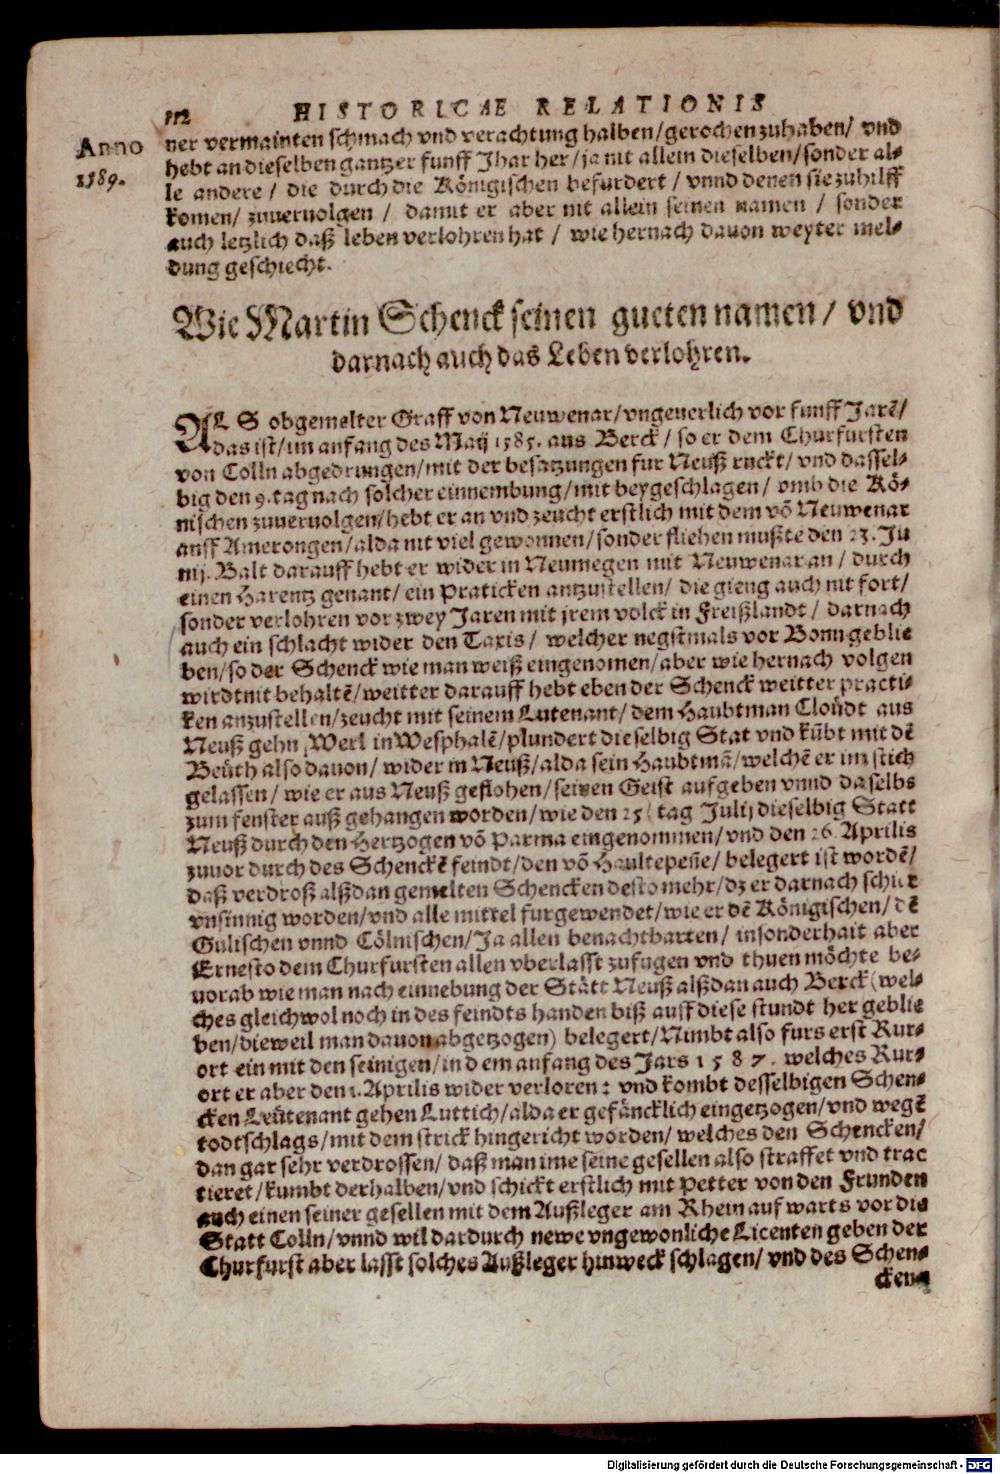 112 HISTORICAE RELATIONIS
Anno
1589.
ner vermainten schmach vnd verachtung halben/gerochen zuhaben/ vnd
hebt an dieselben gantzer funff Jhar her/ja nit allein dieselben/sonder al-
le andere / die durch die Königischen befurdert / vnnd denen sie zuhilff
komen/ zuueruolgen / damit er aber nit allein seinen namen / sonder
auch letzlich daß leben verlohren hat / wie hernach dauon weyter mel-
dung geschiecht.
Wie Martin Schenck seinen gueten namen / vnd
darnach auch das Leben verlohren.
ALS obgemelter Graff von Neuwenar/vngeuerlich vor funff Jarē/
das ist/im anfang des Maij 1585. aus Berck / so er dem Churfursten
von Colln abgedrungen/mit der besatzungen fur Neuß ruckt/ vnd dassel-
big den 9. tag nach solcher einnembung/mit beygeschlagen/ vmb die Kö-
nischen zuueruolgen/hebt er an vnd zeucht erstlich mit dem vō Neuwenar
auff Amerongen/alda nit viel gewonnen/sonder fliehen mußte den 23. Ju
nij. Balt darauff hebt er wider in Neumegen mit Neuwenar an / durch
einen Harentz genant/ ein Praticken antzustellen/ die gieng auch nit fort/
sonder verlohren vor zwey Jaren mit jrem volck in Freißlandt / darnach
auch ein schlacht wider den Taxis / welcher negstmals vor Bonn geblie
ben/so der Schenck wie man weiß eingenomen/aber wie hernach volgen
wirdt nit behaltē/weitter darauff hebt eben der Schenck weitter practi-
ken anzustellen/zeucht mit seinem Lutenant/ dem Haubtman Cloüdt aus
Neuß gehn Werl in Wesphalē/plundert dieselbig Stat vnd kūbt mit dē
Beüth also dauon/ wider in Neuß/alda sein Haubtmā/welchē er im stich
gelassen / wie er aus Neuß geflohen/seinen Geist aufgeben vnnd daselbs
zum fenster auß gehangen worden/wie den 25 tag Julij dieselbig Statt
Neuß durch den Hertzogen vō Parma eingenommen/vnd den 26 Aprilis
zuuor durch des Schenckē feindt/den vō Haultepeñe/ belegert ist wordē/
daß verdroß alßdan gemelten Schencken desto mehr/dz er darnach schir
vnsinnig worden/vnd alle mittel furgewendet/wie er dē Königischen/ dē
Gulischen vnnd Cölnischen/Ja allen benachtbarten/ insonderhait aber
Ernesto dem Churfursten allen vberlasst zufugen vnd thuen möchte be-
uorab wie man nach einnebung der Stätt Neuß alßdan auch Berck (wel-
ches gleichwol noch in des feindts handen biß auff diese stundt her geblie
ben/dieweil man dauon abgetzogen) belegert/Nimbt also furs erst Rur-
ort ein mit den seinigen/in dem anfang des Jars 1587. welches Rur-
ort er aber den 1. Aprilis wider verloren: vnd kombt desselbigen Schen-
cken Leütenant gehen Luttich/alda er gefäncklich eingetzogen/vnd wegē
todtschlags/mit dem strick hingericht worden/ welches den Schencken/
dan gar sehr verdrossen/ daß man ime seine gesellen also straffet vnd trac
tieret/kumbt derhalben/vnd schickt erstlich mit Petter von den Frunden
auch einen seiner gesellen mit dem Außleger am Rhein auf warts vor die
Statt Colln/vnnd wil dardurch newe vngewonliche Licenten geben der
Churfurst aber lasst solches Außleger hinweck schlagen/ vnd des Schen-
cken
Digitalisierung gefördert durch die Deutsche Forschungsgemeinschaft - DFG